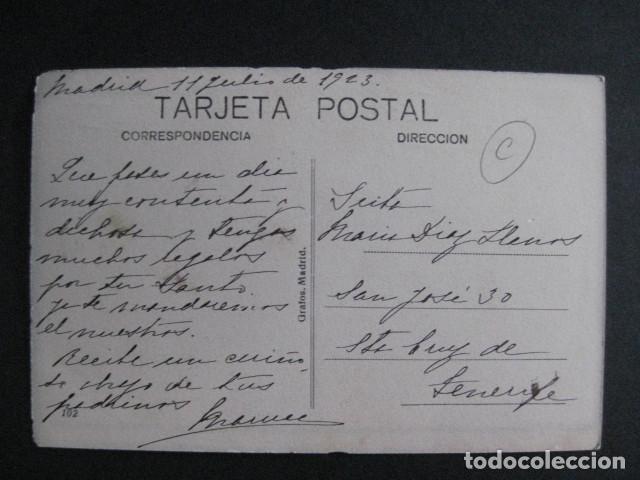 Madrid 11 Julio de 1923.
TARJETA POSTAL
CORRESPONDENCIA
DIRECCION
C
Que pases un dia
muy contenta y
dichosa y tengas
muchos regalos
por tu Santo.
ya te mandaremos
el nuestro.
Recibe un cariño
so de tus
padrinos
102
Grafos. Madrid.
Srita
Maria Diaz Llanos
San José 30
Sta Cruz de
Tenerife
todocoleccion.net